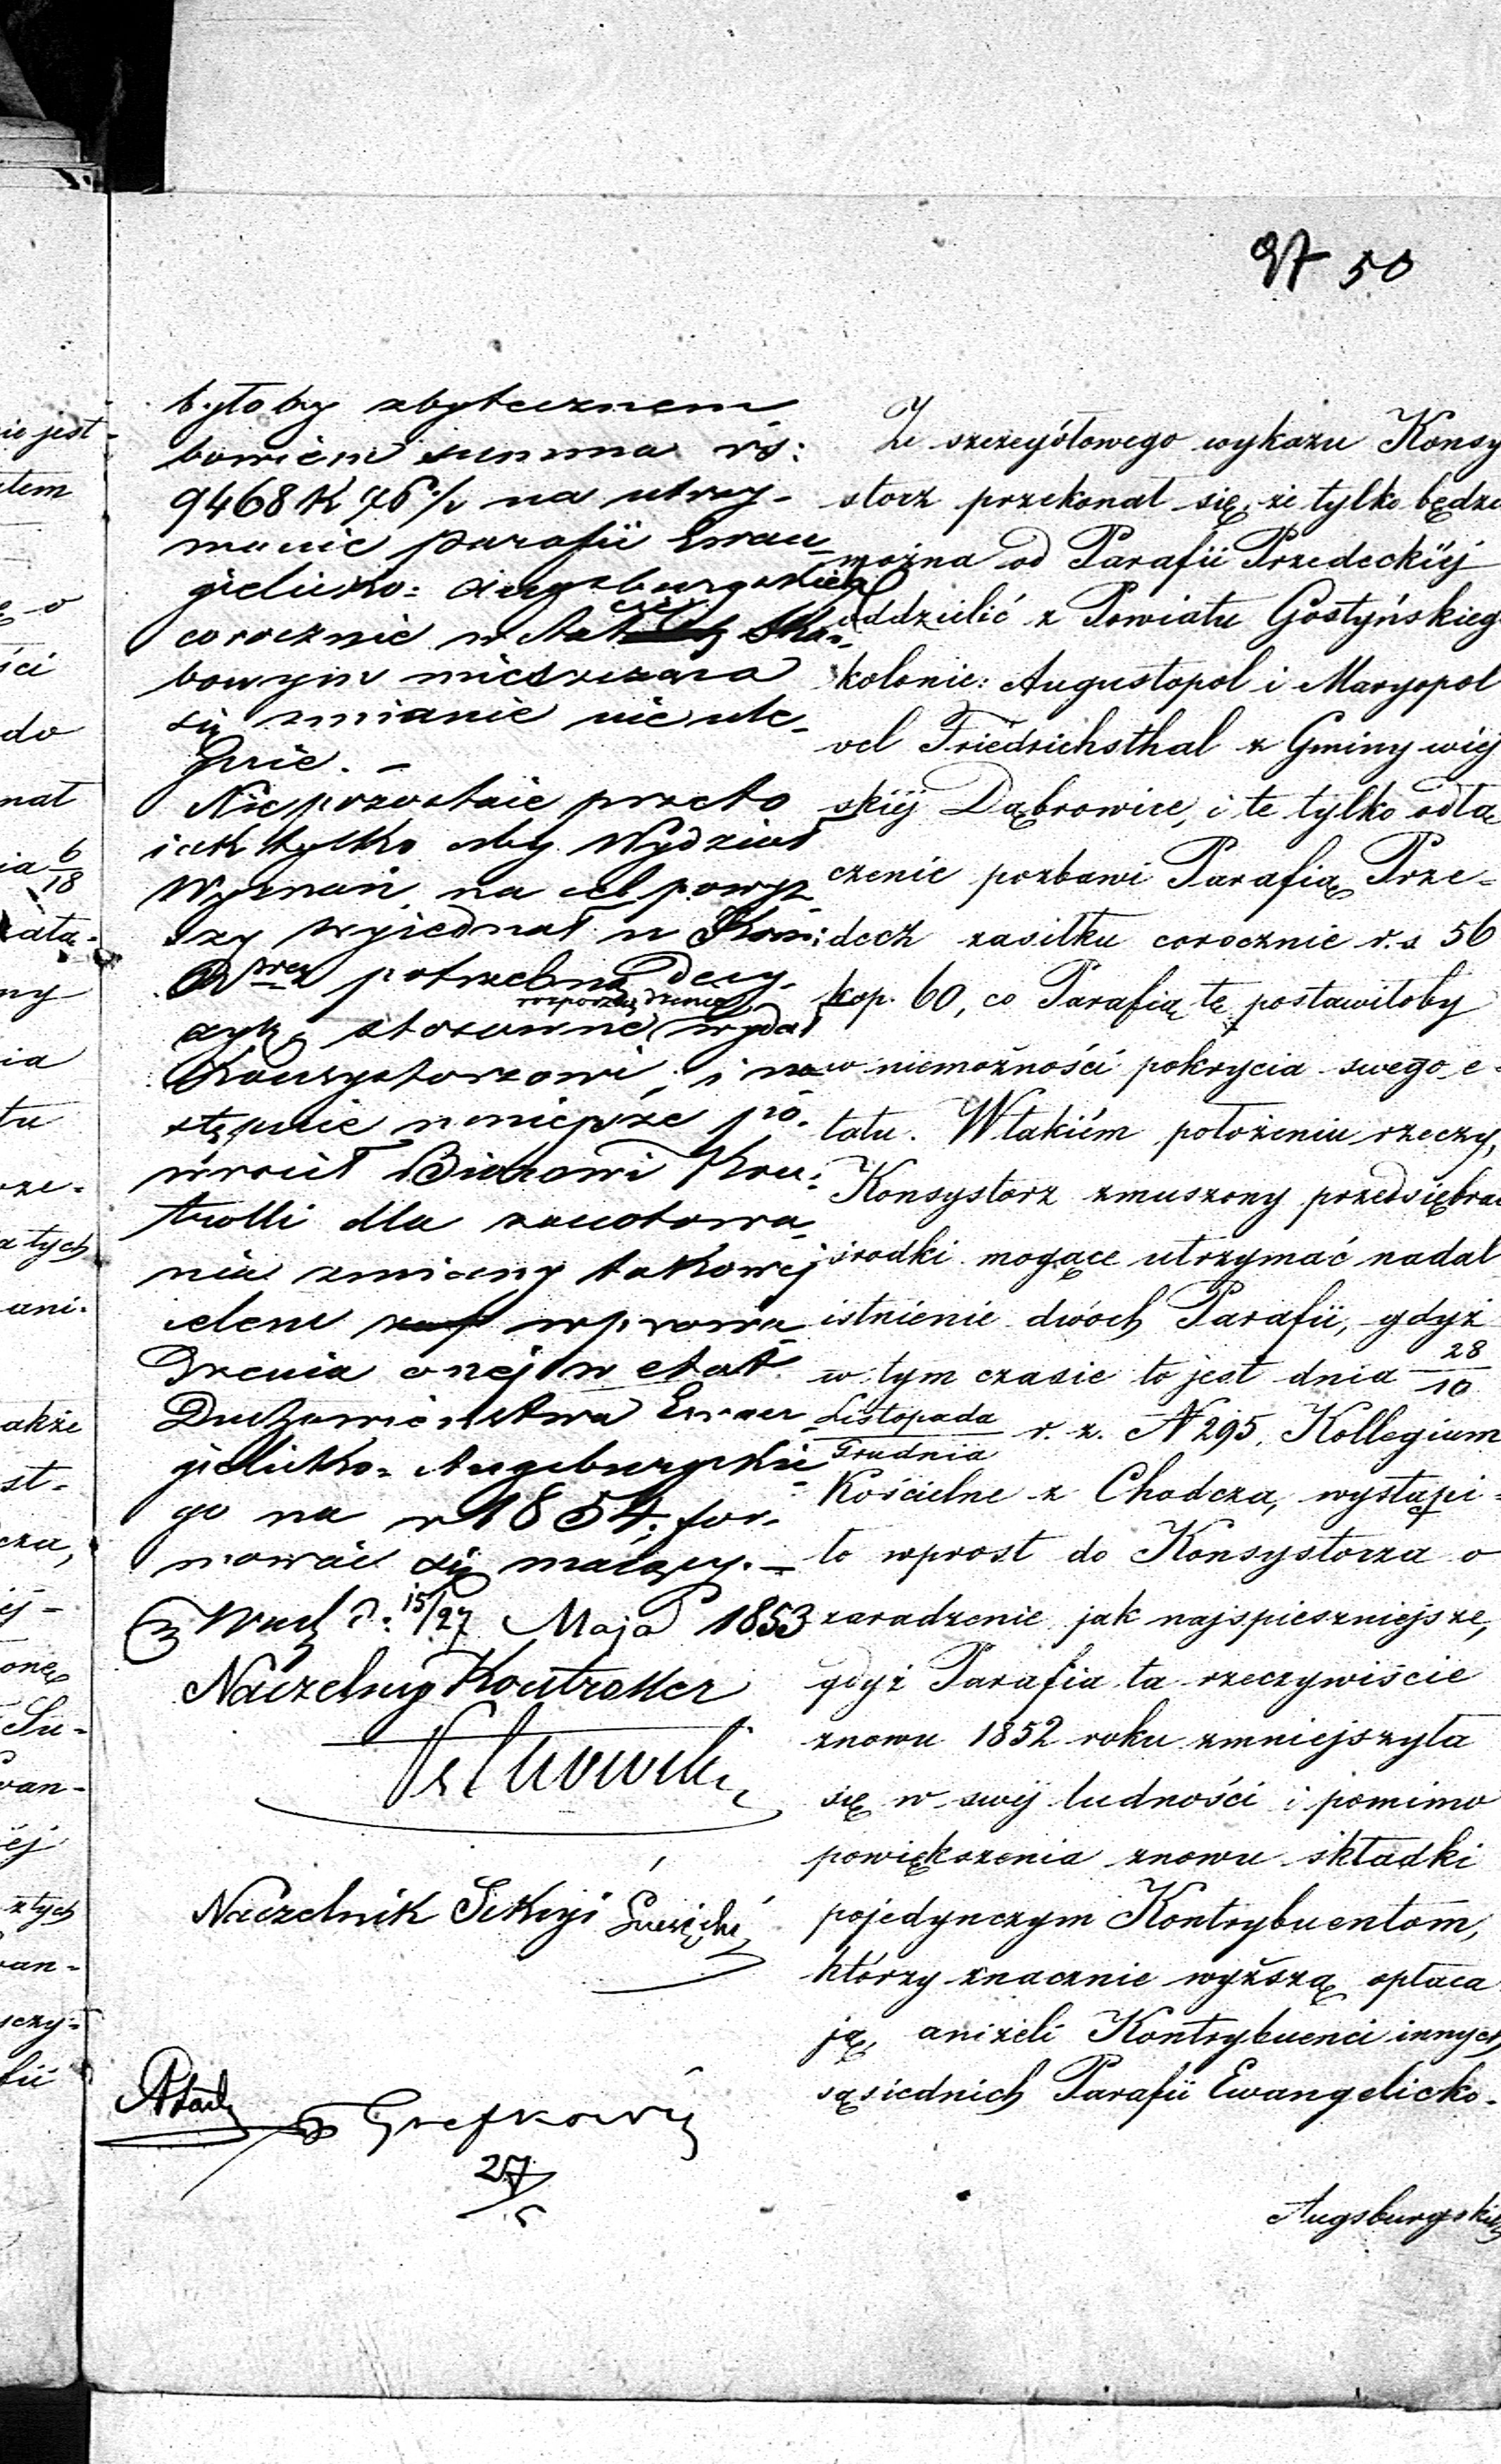 50
byłoby zbytecznem
bowiem summa rs:
9468 K 76½ na utrzy-
manie parafii Ewan-
gielicko: Augsburgskich
corocznie w Skar-
bowym mieszcząca
się zmianie nie ule-
gnie. –
Nie pozostaie przeto
iak tylko aby Wydział
Wyznań na cel powyż-
szy wyiednał u Kom:
Rządzącej potrzebną Decy-
rozporządzenie
zyą, stosowne wydał
Konsystorzowi, i na-
stępnie ninieysze po-
wrócił Biurowi Kon-
trolli dla zanotowa-
nia zmiany takowej
celem wprowa-
dzenia onej w etat
Duchowieństwa Ewan-
gielicko-Augsburgskie-
go na r 1854, for-
mować się maiący. –
w Warsz d: 15/27 Maja 1853
Naczelny Kontroller
Naczelnik Sekcyi
27/5
Ze szczegółowego wykazu Konsy
storz przekonał się, że tylko będzie
można od Parafii Przedeckiéj
oddzielić z Powiatu Gostyńskieg
kolonie: Augustopol i Maryopol
vel Friedrichsthal z Gminy wiej
skiéj Dąbrowice, i te tylko odłą
czenie pozbawi Parafią Prze-
decz zasiłku corocznie r.s 56
kop. 60, co Parafią tę postawiłoby
w niemożności pokrycia swego e-
tatu. W takiém położeniu rzeczy,
Konsystorz zmuszony przedsiębrać
środki mogące utrzymać nadal
istnienie dwóch Parafii, gdyż
w tym czasie to jest dnia 28/10
Listopada/Grudnia r. z. N 295, Kollegium
Kościelne z Chodcza, wystąpi-
ło wprost do Konsystorza o
zaradzenie jak najspieszniejsze,
gdyż Parafia ta rzeczywiście
znowu 1852 roku zmniejszyła
się w swéj ludności i pomimo
powiększenia znowu składki
pojedynczym Kontrybuentom,
którzy znacznie wyższą opłaca
ją, aniżeli Kontrybuenci innych
sąsiednich Parafii Ewangelicko-
Augsburgskich